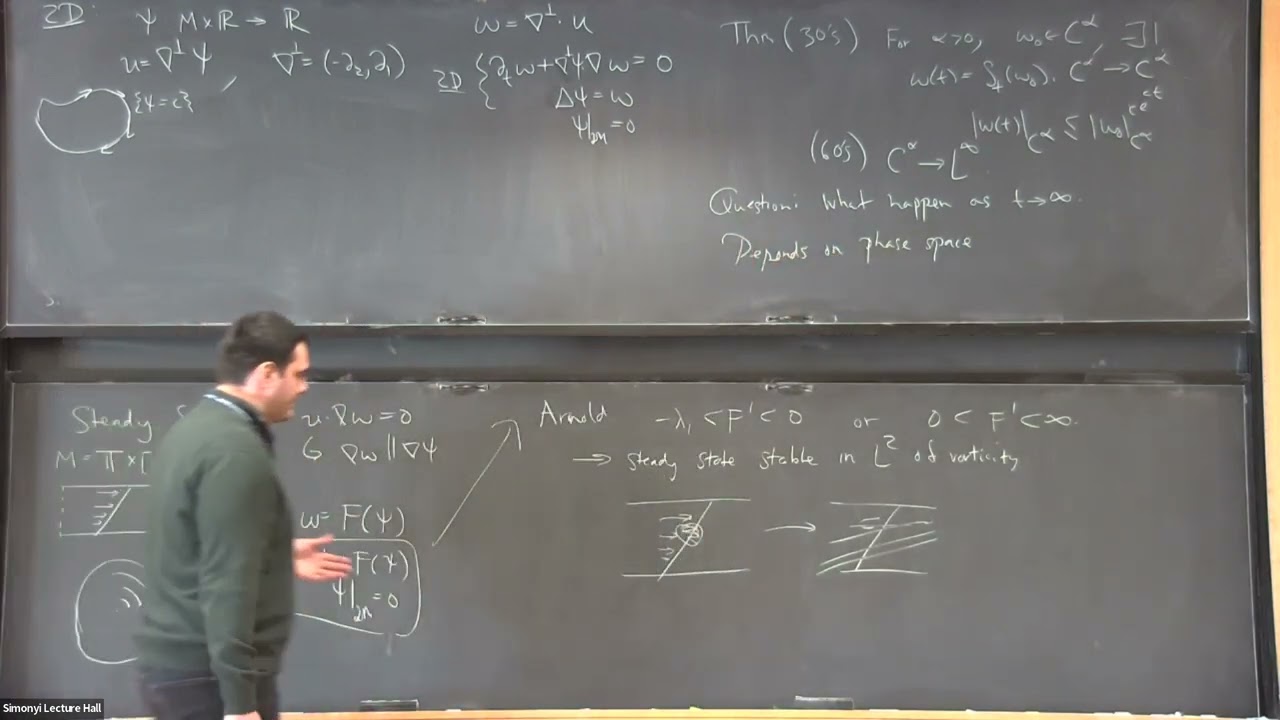 2D: ψ M×ℝ → ℝ
u = ∇^⊥ψ ∇^⊥ = (-∂₂, ∂₁)
{ψ=c}
ω = ∇^⊥· u
2D { ∂ₜω + ∇^⊥ψ∇ω = 0
Δψ = ω
ψ|_∂M = 0
Thm (30's) For α>0, ω₀∈C^α, ∃!
ω(t) = Sₜ(ω₀). C^α → C^α
|ω(t)|_C^α ≤ |ω₀|_C^α^ce^ct
(60's) C^α → L^∞
Question: What happen as t→∞.
Depends on phase space
Steady
M = 𝕋×[
u·∇ω = 0
∇ω ∥ ∇ψ
ω = F(ψ)
F(ψ)
ψ|_∂M = 0
Arnold -λ₁ < F' < 0 or 0 < F' < ∞.
→ steady state stable in L² of vorticity
Simonyi Lecture Hall